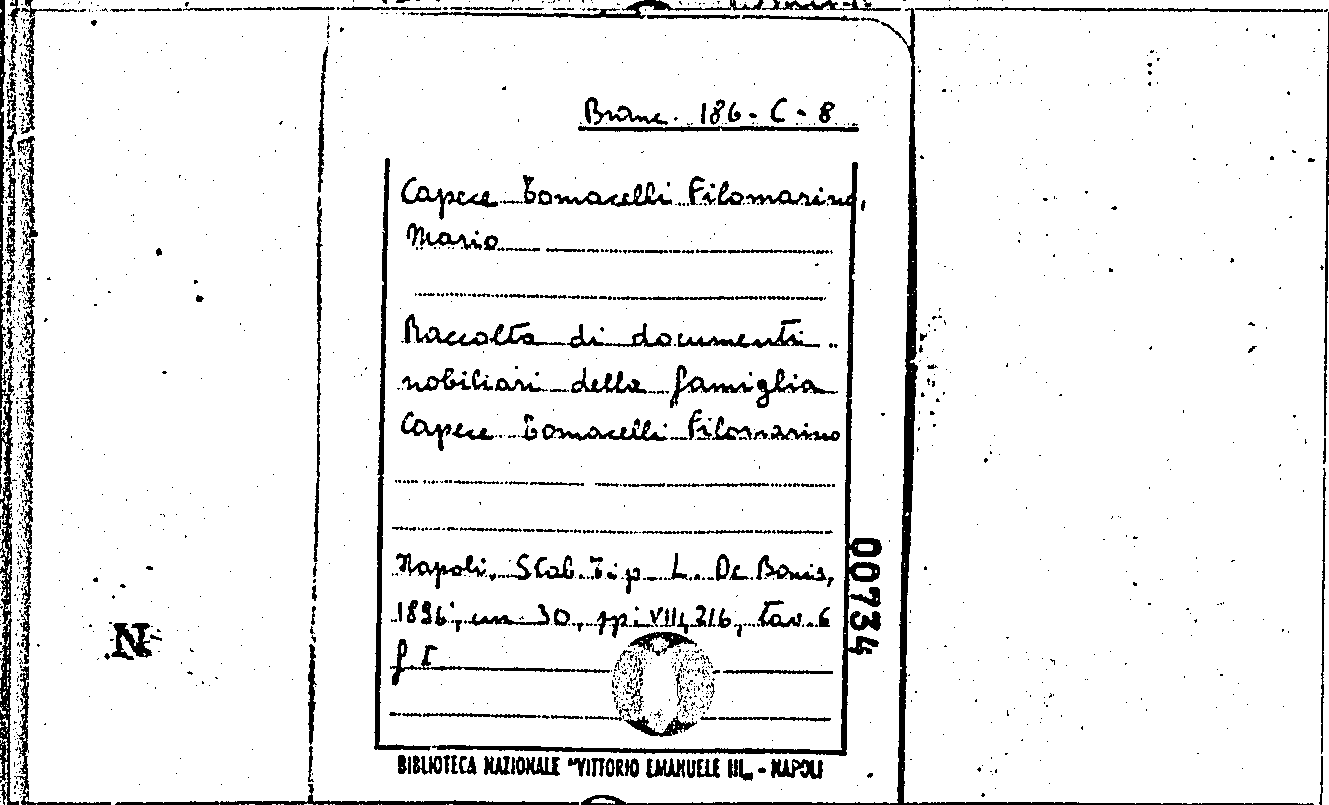 Branc. 186-C-8
Capece Tomacelli Filomarino,
Mario
Raccolta di documenti
nobiliari della famiglia
Capece Tomacelli Filomarino
Napoli, Stab. Tip. L. De Bonis,
1896, cm. 30, pp. VIII, 216, tav. 6
f. t.
00734
N
BIBLIOTECA NAZIONALE "VITTORIO EMANUELE III„ - NAPOLI